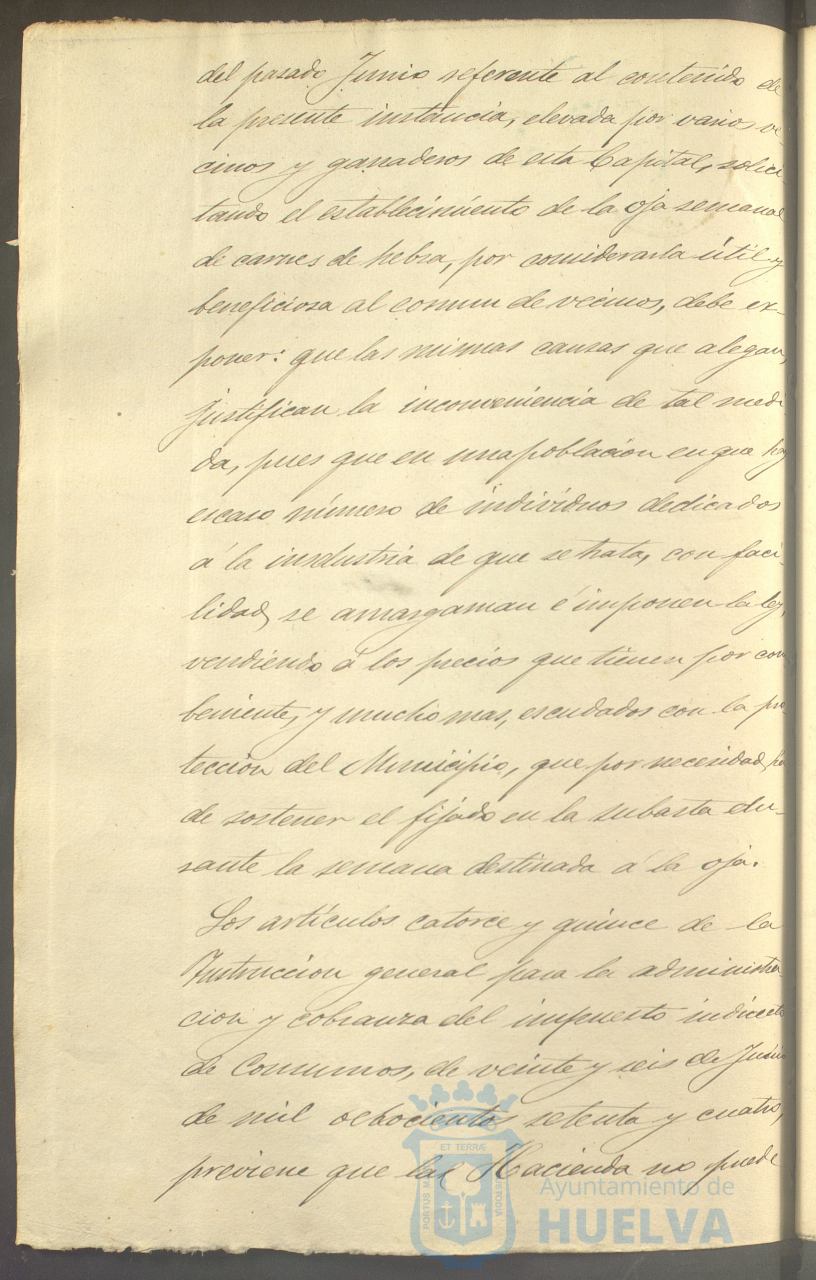 del pasado Junio referente al contenido de
la presente instancia, elevada por varios ve-
cinos y ganaderos de esta Capital, solici-
tando el establecimiento de la oja semanal
de carnes de hebra, por considerarla útil y
beneficiosa al comun de vecinos, debe ex-
poner: que las mismas causas que alegan,
justifican la inconveniencia de tal medi-
da, pues que en una poblacion en que hay
escaso número de individuos dedicados
á la insdustria de que se trata, con faci-
lidad, se amargaman é imponen la ley,
vendiendo á los precios que tienen por con-
beniente, y mucho mas, escudados con la pro-
teccion del Municipio, que por necesidad ha
de sostener el fijado en la subasta du-
rante la semana destinada á la oja.
Los artículos catorce y quince de la
Instruccion general para la administra
cion y cobranza del impuesto indirecto
de Consumos, de veinte y seis de Junio
de mil ochocientos setenta y cuatro,
previene que la Hacienda no puede
ET TERRÆ
PORTUS M
CUSTODIA
Ayuntamiento de
HUELVA